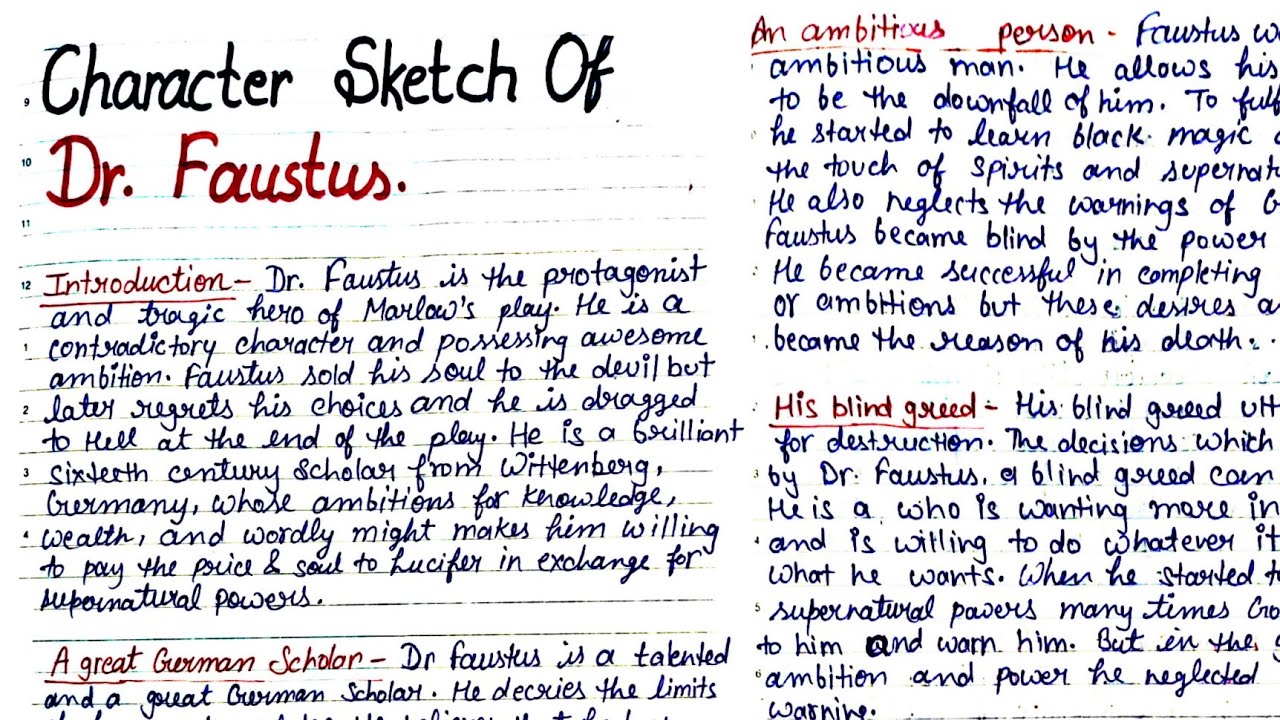 Character Sketch Of
Dr. Faustus.
9
10
11
12
Introduction - Dr. Faustus is the protagonist
and tragic hero of Marlow's play. He is a
1 contradictory character and possessing awesome
ambition. Faustus sold his soul to the devil but
2 later regrets his choices and he is dragged
to Hell at the end of the play. He is a brilliant
3 sixteeth century Scholar from Wittenberg,
Germany, whose ambitions for knowledge,
4 wealth, and wordly might makes him willing
to pay the price & soul to Lucifer in exchange for
supernatural powers.
A great German Scholar - Dr Faustus is a talented
and a great German Scholar. He decries the limits
An ambitious person - Faustus
ambitious man. He allows his
to be the downfall of him. To
he started to learn black magic
the touch of spirits and
He also neglects the warnings of
Faustus became blind by the power
He became successful in completing
or ambitions but these desires
became the reason of his death.
His blind greed - His blind greed
for destruction. The decisions which
3 by Dr. Faustus, a blind greed can
He is a who is wanting more in
4 and is willing to do whatever it
what he wants. When he started
5 supernatural powers many times
to him and warn him. But in the
6 ambition and power he neglected
warning.